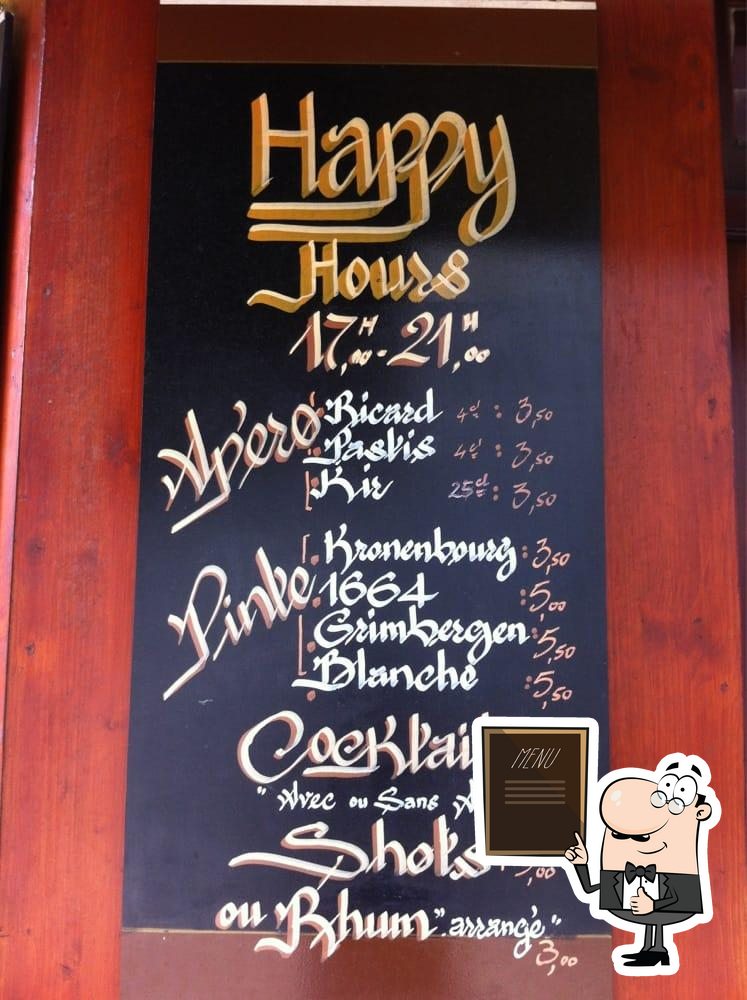 Happy
Hours
17H,00 - 21H,00
Apéro
Ricard 4cl : 3,50
Pastis 4cl : 3,50
Kir 25cl : 3,50
Pinte
Kronenbourg : 3,50
1664 : 5,00
Grimbergen : 5,50
Blanche : 5,50
MENU
"Avec ou Sans
Shots
ou Rhum "arrangé"
3,00